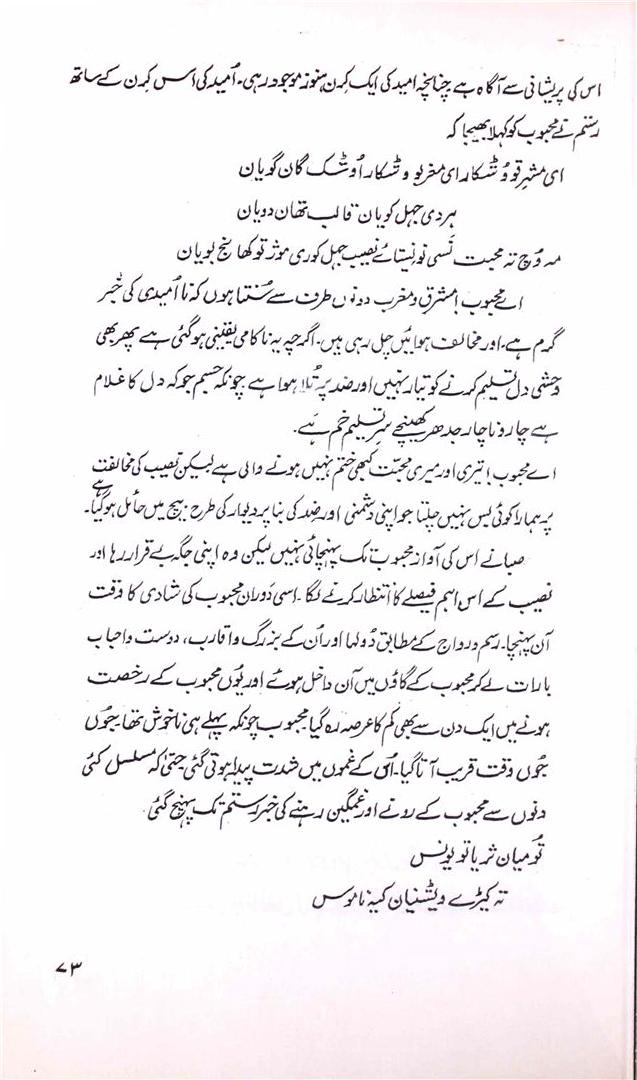 اس کی پریشانی سے آگاہ ہے چنانچہ امید کی ایک کرن ہنوز موجود رہی۔ اُمید کی اس کرن کے ساتھ
رستم نے محبوب کو کہلا بھیجا کہ
ای مشرقو وٹسکار ای مغربو وٹسکار اوشک گان گویان
ہردی جہل کویان قالب تھان دویان
مہ وُچ تہ محبت نَسی نو نیستائے نصیب جہل کوری موژ توکھا نج بویان
اے محبوب! مشرق و مغرب دونوں طرف سے سُنتا ہوں کہ نا اُمیدی کی خبر
گرم ہے۔ اور مخالف ہوائیں چل رہی ہیں۔ اگرچہ یہ ناکامی یقینی ہو گئی ہے پھر بھی
وحشی دل تسلیم کرنے کو تیار نہیں اور ضد پر تُلا ہوا ہے چونکہ جسیم جو کہ دل کا غلام
ہے چار و ناچار جدھر کھینچے سرِ تسلیم خم ہے۔
اے محبوب! تیری اور میری محبّت کبھی ختم نہیں ہونے والی ہے لیکن نصیب کی مخالفت
پر ہمارا کوئی بس نہیں چلتا جو اپنی دشمنی اور ضد کی بنا پر دیوار کی طرح بیچ میں حائل ہو گیا ہے۔
صبا نے اس کی آواز محبوب تک پہنچائی نہیں لیکن وہ اپنی جگہ بے قرار رہا اور
نصیب کے اس اہم فیصلے کا انتظار کرنے لگا۔ اسی دَوران محبوب کی شادی کا وقت
آن پہنچا۔ رسم و رواج کے مطابق دُولہا اور اُن کے بزرگ و اقارب، دوست و احباب
بارات لے کر محبوب کے گاؤں میں آن داخل ہوئے اور یُوں محبوب کے رخصت
ہونے میں ایک دن سے بھی کم کا عرصہ رہ گیا۔ محبوب چونکہ پہلے ہی ناخوش تھا، جُوں
جُوں وقت قریب آتا گیا۔ اُس کے غموں میں شدت پیدا ہوتی گئی حتیٰ کہ مسلسل کئی
دنوں سے محبوب کے رونے اور غمگین رہنے کی خبر رستم تک پہنچ گئی
تُو میان ثریا تو یونس
تہ کیڑے ویشنیان کیہ ناموس
۷۳